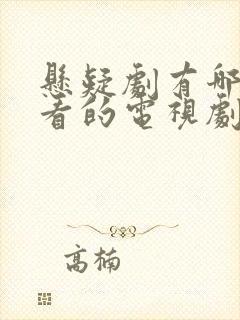 懸疑劇有哪
看的電視劇
高楠